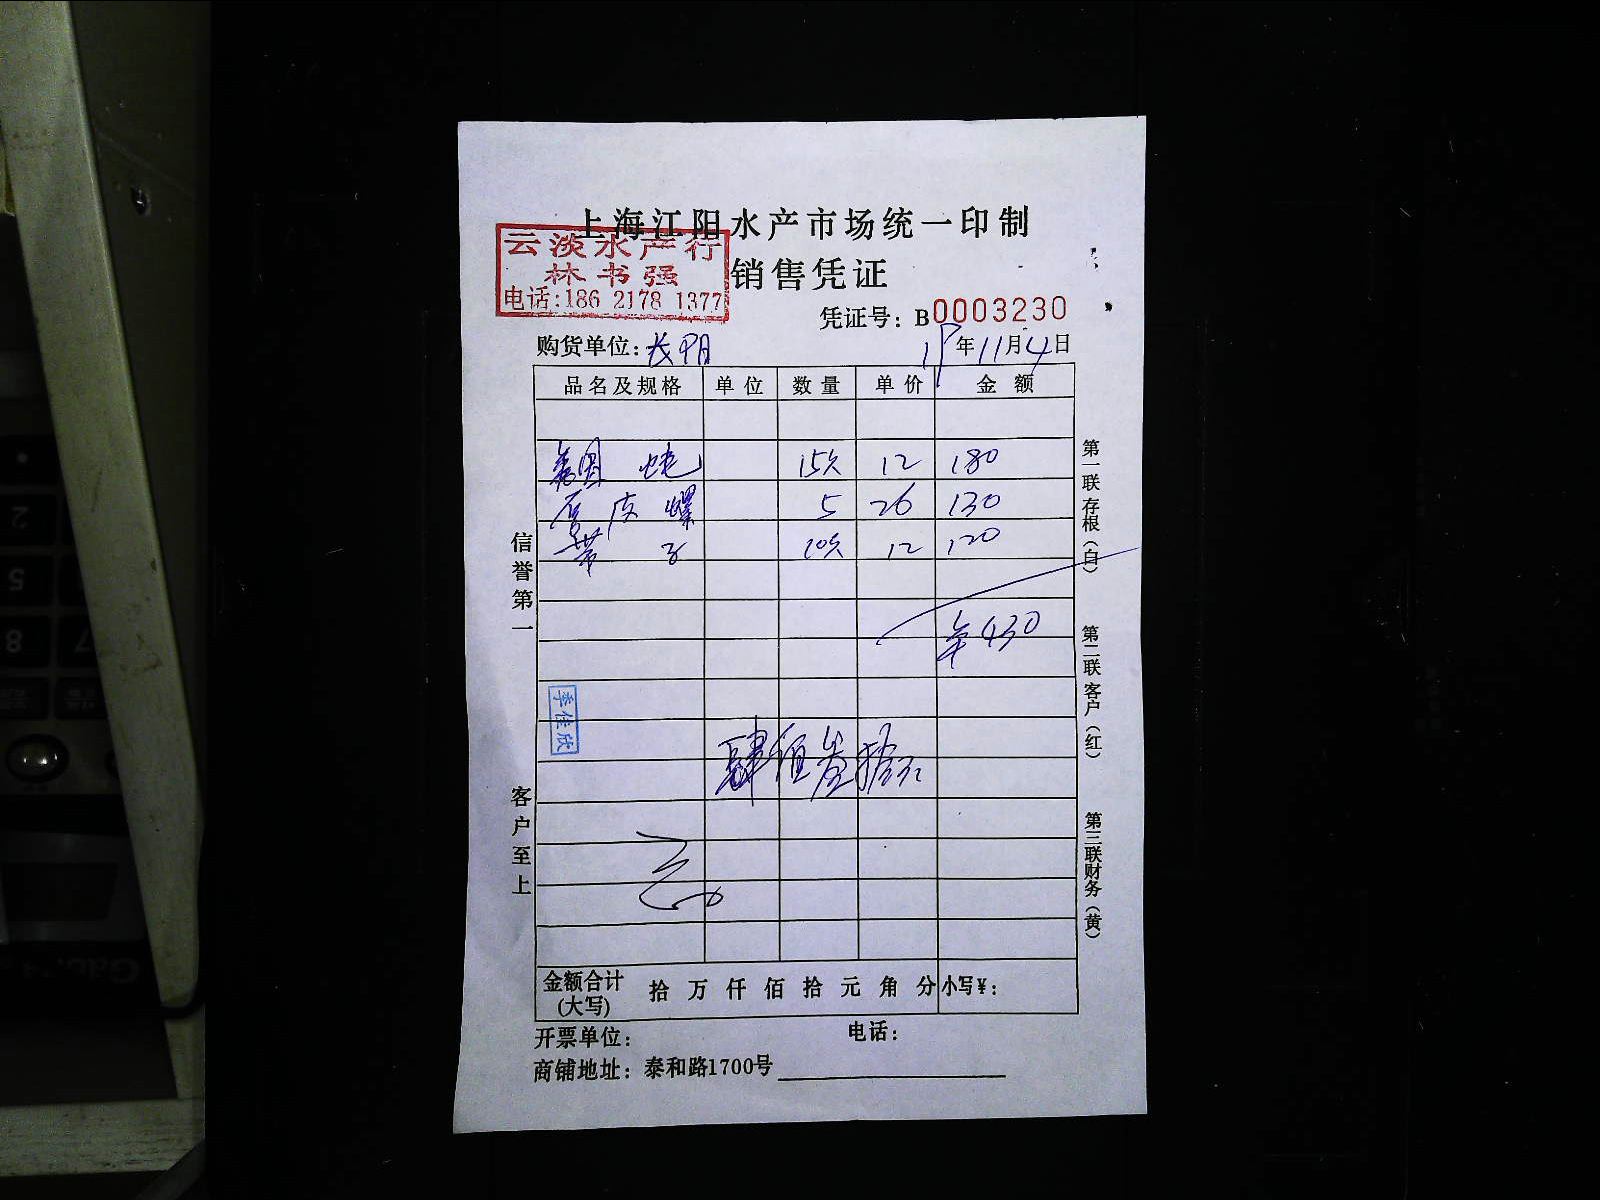 上海江阳水产市场统一印制
云淡水产行
林书强
电话:186 2178 1377
销售凭证
凭证号: B0003230
购货单位: 长阳
19年11月4日
品名及规格 单位 数量 单价 金额
15 12 180
皮螺 5 26 130
带子 10 12 120
¥430
季佳欣
肆佰叁拾元
金额合计(大写) 拾 万 仟 佰 拾 元 角 分 小写¥:
开票单位: 电话:
商铺地址: 泰和路1700号
信誉第一
客户至上
第一联存根(白)
第二联客户(红)
第三联财务(黄)